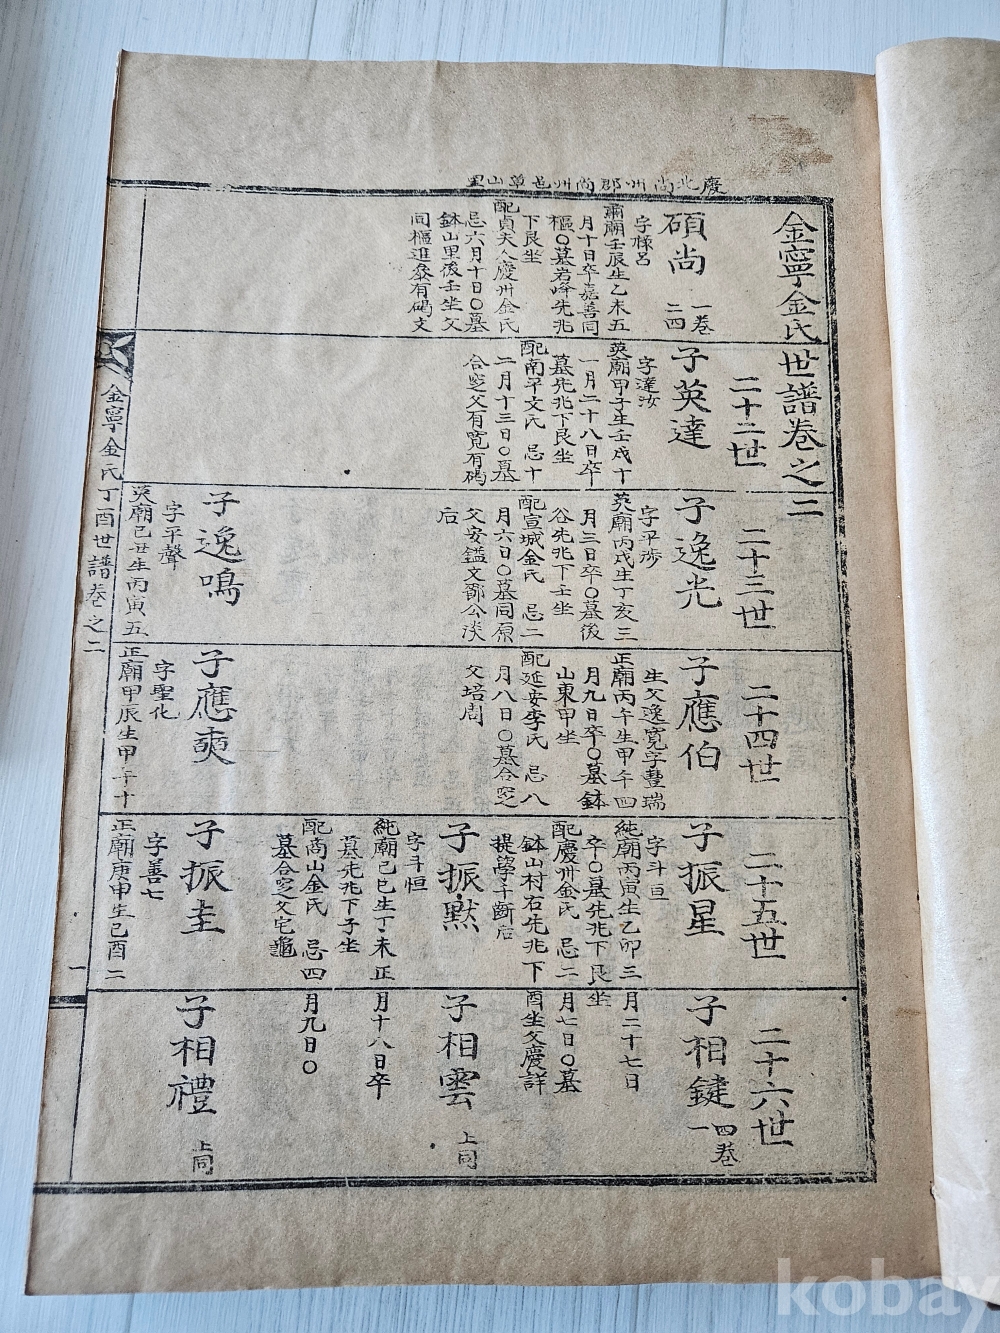 慶北尙州郡尙州邑草山里
金寧金氏世譜卷之二
二十二世
二十三世
二十四世
二十五世
二十六世
碩尙
一卷
二四
字樣呂
肅廟壬辰生乙未五
月十日卒嘉善同
樞○墓岩峰先兆
下艮坐
配貞夫人慶州金氏
忌六月十日○墓
鉢山里後壬坐父
同樞進燊有碣文
子英達
字達汝
英廟甲子生壬戌十
一月二十八日卒
墓先兆下艮坐
配南平文氏 忌十
二月十三日○墓
合窆父有寬有碣
子逸光
字平涉
英廟丙戌生丁亥三
月三日卒○墓後
谷先兆下壬坐
配宣城金氏 忌二
月六日○墓同原
父安鎰文鄒公淡
后
子應伯
生父逸寬字豐瑞
正廟丙午生甲午四
月九日卒○墓鉢
山東甲坐
配延安李氏 忌八
月八日○墓合窆
父培周
子振星
字斗亘
純廟丙寅生乙卯三
月二十七日
卒○墓先兆下艮坐
配慶州金氏 忌二
月七日○墓
鉢山村右先兆下
酉坐父慶詳
提學千齡后
子相鍵
四卷
一
子振默
字斗恒
純廟己巳生丁未正
月十八日卒
墓先兆下子坐
配商山金氏 忌四
月九日○
墓合窆父宅龜
子相雲
上同
子逸鳴
字平聲
英廟己丑生丙寅五
子應奭
字聖化
正廟甲辰生甲午十
子振圭
字善七
正廟庚申生己酉二
子相禮
上同
金寧金氏丁酉世譜卷之二
一
kobay